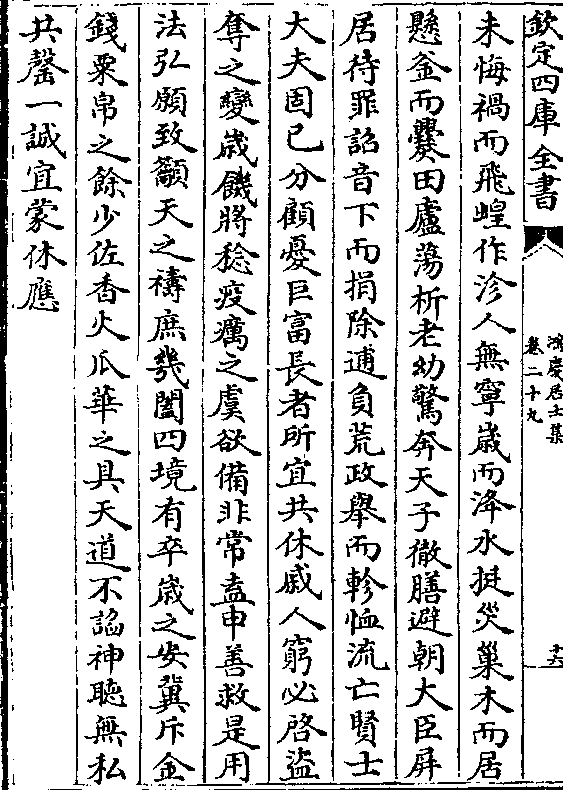 欽定四庫全書
鴻慶居士集
卷二十九
十六
未悔禍而飛蝗作沴人無寧歲而洚水挺災巢木而居
懸釜而爨田廬蕩析老幼驚奔天子徹膳避朝大臣屏
居待罪詔音下而捐除逋負荒政舉而軫恤流亡賢士
大夫固已分顧憂巨富長者所宜共休戚人窮必啓盜
奪之變歲饑將稔疫癘之虞欲備非常盍申善救是用
法弘願致籲天之禱庶幾闔四境有卒歲之安冀斥金
錢粟帛之餘少佐香火瓜華之具天道不謟神聽無私
共罄一誠宜蒙休應